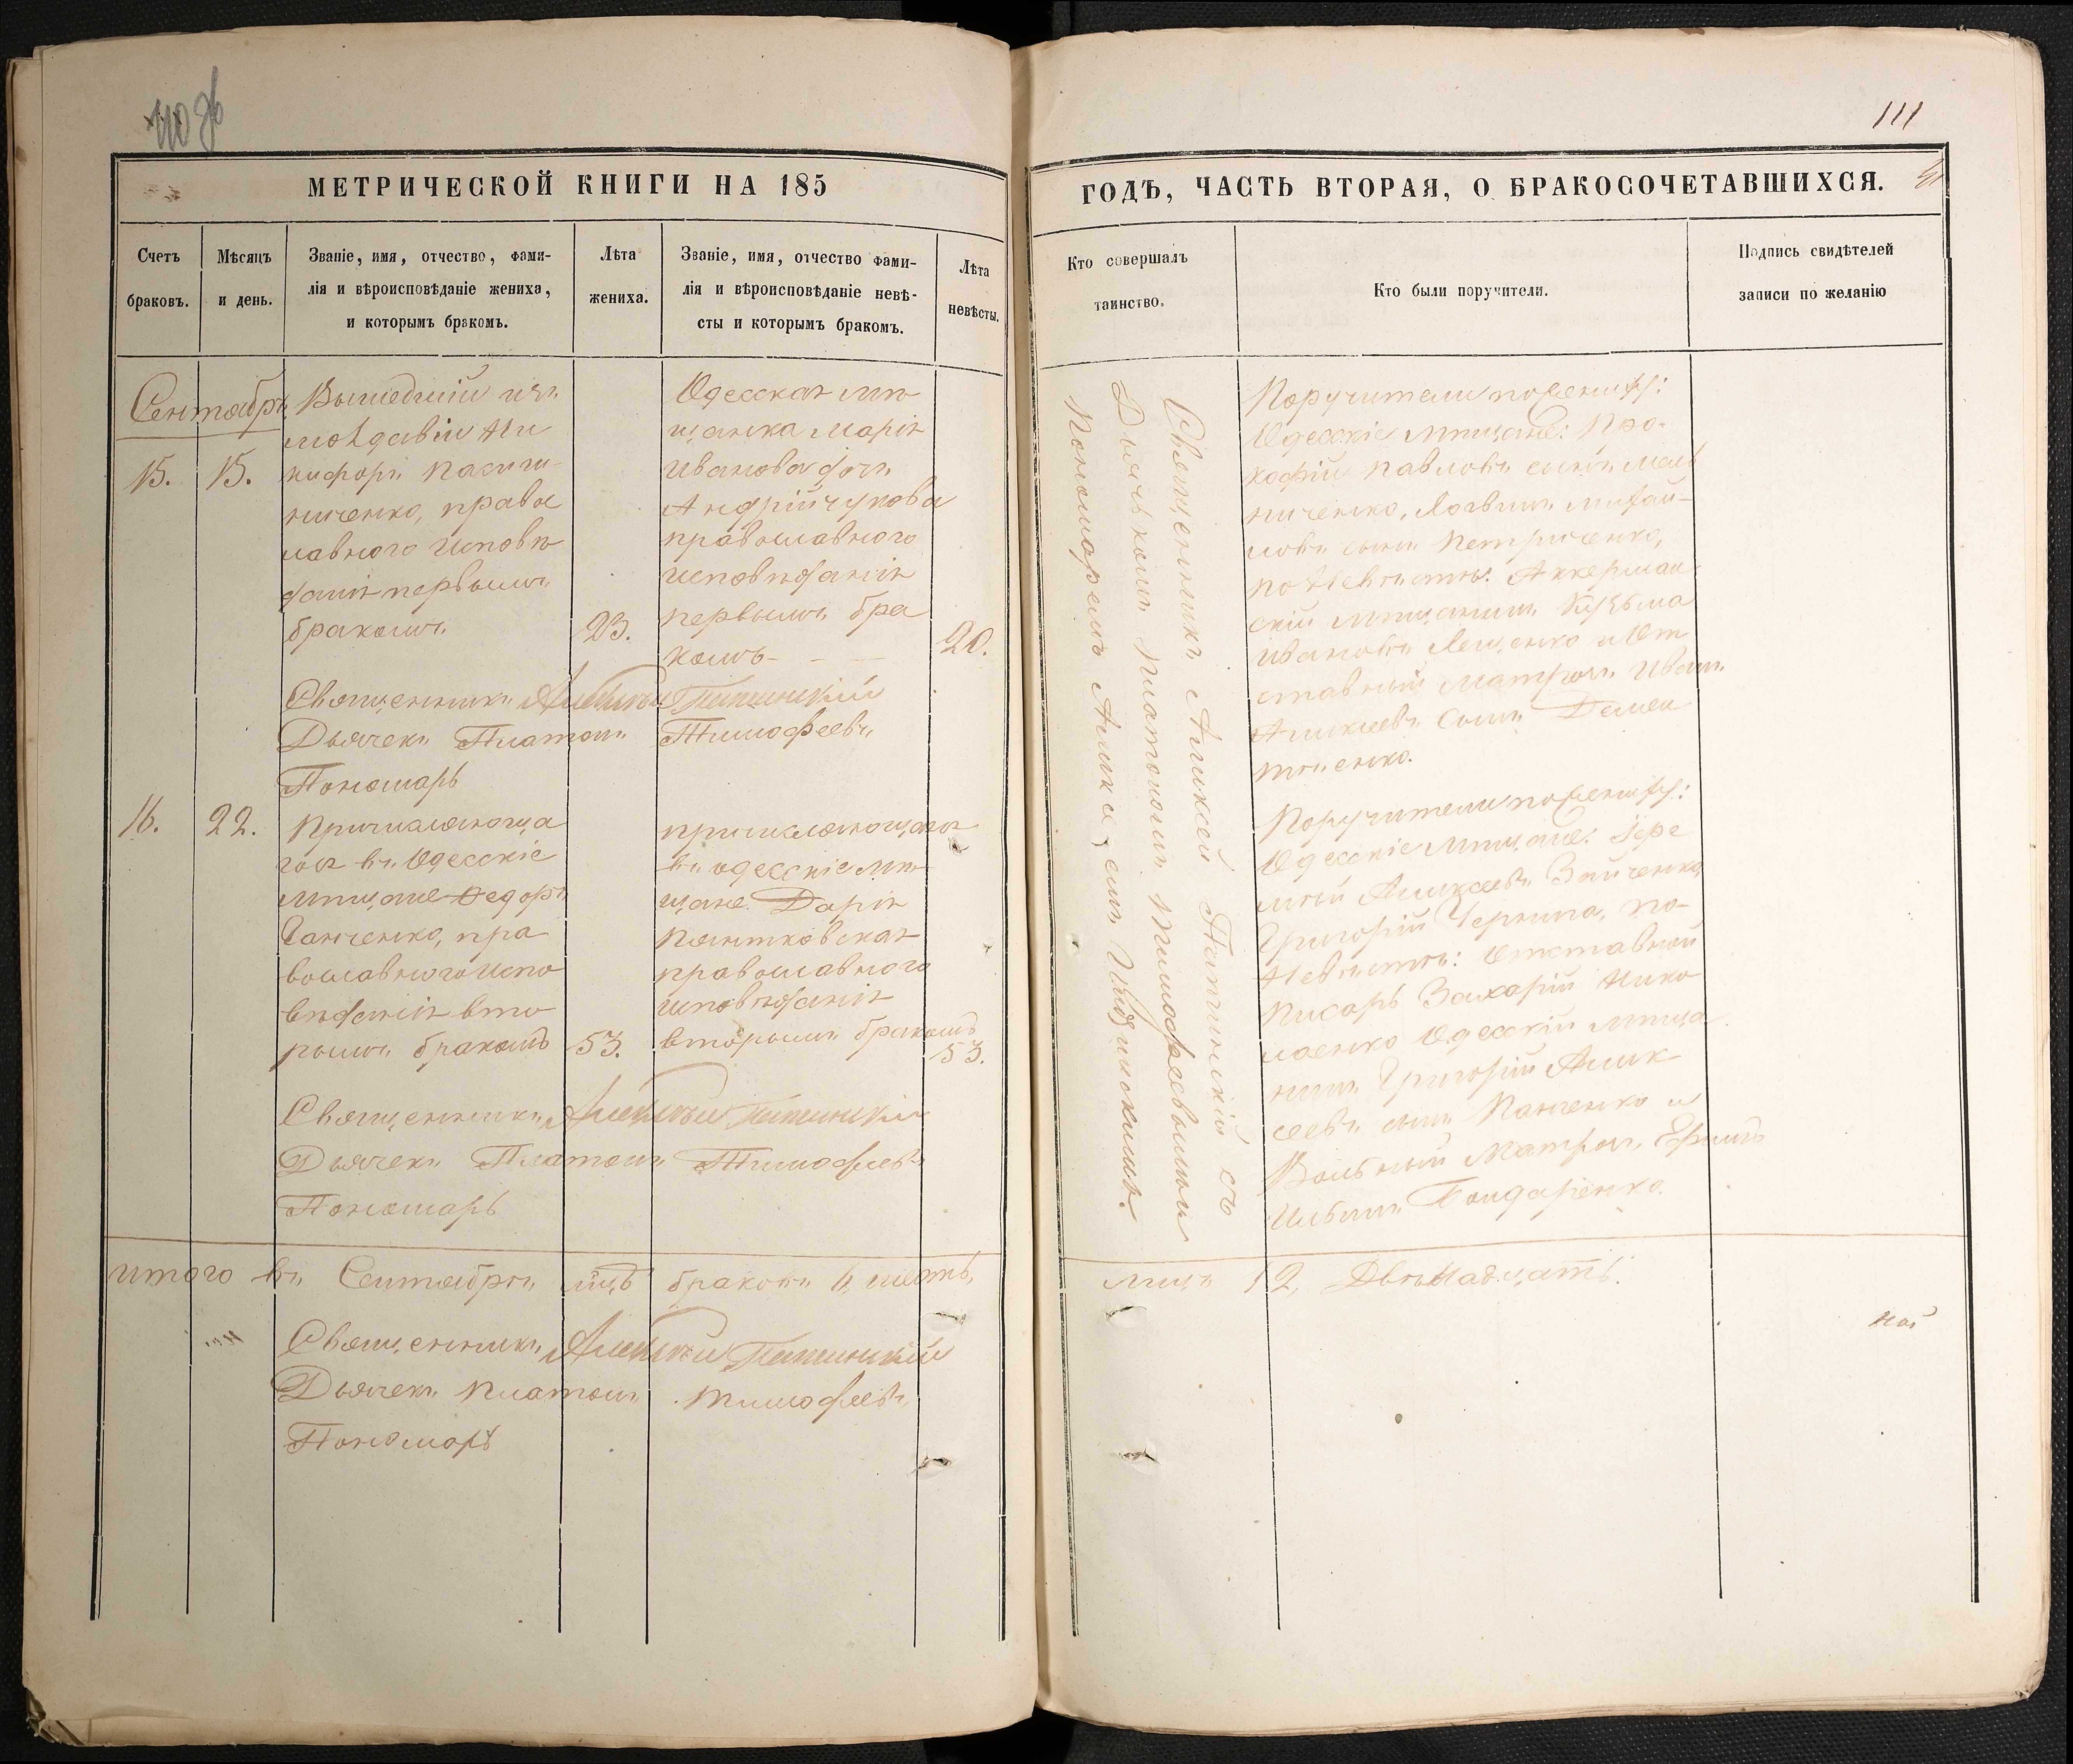 111
МЕТРИЧЕСКОЙ КНИГИ НА 185
Счетъ
браковъ.
Мѣсяцъ
и день.
Званіе, имя, отчество, фами-
лія и вѣроисповѣданіе жениха,
и которымъ бракомъ.
Лѣта
жениха.
Званіе, имя, отчество фами-
лія и вѣроисповѣданіе невѣ-
сты и которымъ бракомъ.
Лѣта
невѣсты.
Сентябрь
15.
15.
Вышедшій изъ
Молдавіи Ни
кифоръ Пасѣч
ниченко, право
лавного исповѣ
данія первымъ
бракомъ.
23.
Одесская мѣ
щанка Марія
Иванова дочь
Андрійчукова
православного
исповѣданія
первымъ бра
комъ
20.
Священникъ Алексѣй
Дьячекъ Платонъ Тимофеевъ
Пономарь
16.
22.
Причисляюща
гося въ Одесскіе
мѣщане Федоръ
Ганченко, пра
вославного испо
вѣданія вто
рымъ бракомъ
53.
причисляющаяся
въ одесскіе мѣ
щане Дарія
православного
исповѣданія
вторымъ бракомъ
53.
Священникъ Алексѣй
Дьячекъ Платонъ Тимофеевъ
Пономарь
итого въ Сентябрѣ мцѣ браковъ 6, шесть,
Священникъ Алексѣй
Дьячекъ Платонъ Тимофеевъ
Пономарь
ГОДѢ, ЧАСТЬ ВТОРАЯ, О БРАКОСОЧЕТАВШИХСЯ.
Кто совершалъ
таинство.
Кто были поручители.
Подпись свидѣтелей
записи по желанію
Священникъ Аликсей съ
Дьячькомъ Платономъ Тимофеевымъ и
Пономаремъ
Поручители по женихѣ:
Одесскіе Мѣщане: Про-
кофій Павловъ сынъ Мель
ниченко, Логвинъ Михай-
ловъ сынъ Петриченко,
по Невѣстѣ: Аккерман
скій Мѣщанинъ Кузьма
Ивановъ Лещенко и От
ставный Матрозъ Иванъ
Аликсеевъ Сынъ Демен
тѣенко.
Поручители по женихѣ:
Одесскіе Мѣщане: Іере
мѣй Аликсеевъ Зайченко,
Григорій Чернига, по
Невѣстѣ: Отставной
Писарь Захарій Нико
лаенко Одесскій мѣща
нинъ Григорій Алик
сеевъ сынъ Панченко и
Вольный Матрозъ Ефимъ
Ильинъ Бондаренко.
лицъ 12, Двѣнадцать.